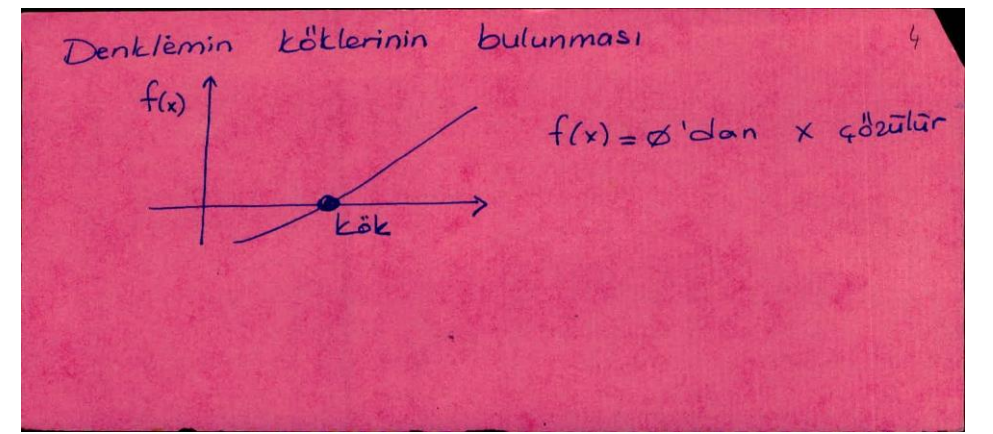 Denklemin köklerinin bulunması
4
f(x)
f(x) = ø'dan x çözülür
kök